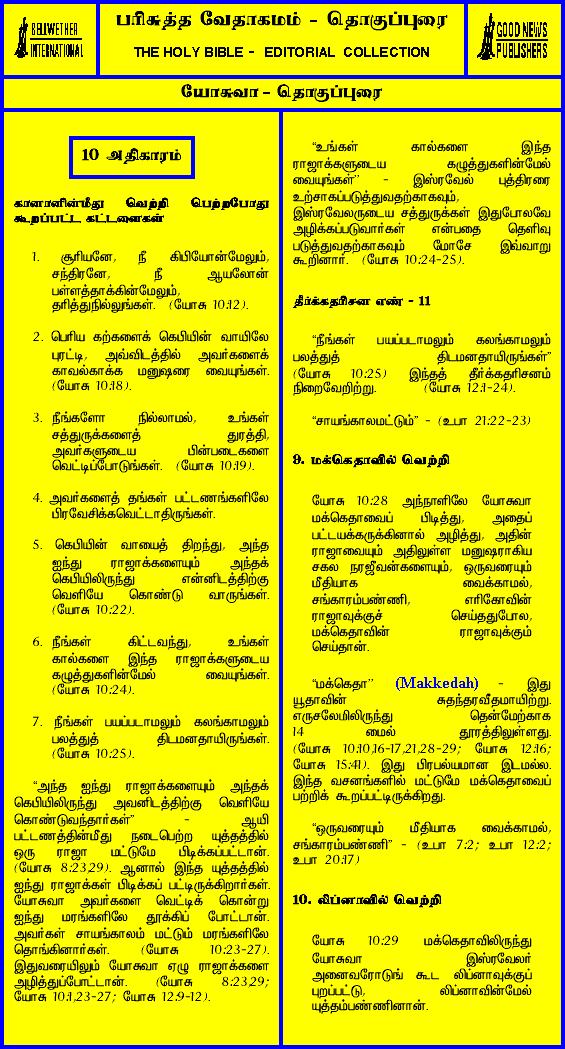 BELLWETHER
INTERNATIONAL
பரிசுத்த வேதாகமம் – தொகுப்புரை
THE HOLY BIBLE - EDITORIAL COLLECTION
GOOD NEWS
PUBLISHERS
யோசுவா – தொகுப்புரை
10 அதிகாரம்
கானானின்மீது வெற்றி பெற்றபோது
கூறப்பட்ட கட்டளைகள்
1. சூரியனே, நீ கிபியோன்மேலும்,
சந்திரனே, நீ ஆயலோன்
பள்ளத்தாக்கின்மேலும்,
தரித்துநில்லுங்கள். (யோசு 10:12).
2. பெரிய கற்களைக் கெபியின் வாயிலே
புரட்டி, அவ்விடத்தில் அவர்களைக்
காவல்காக்க மனுஷரை வையுங்கள்.
(யோசு 10:18).
3. நீங்களோ நில்லாமல், உங்கள்
சத்துருக்களைத் துரத்தி,
அவர்களுடைய பின்படைகளை
வெட்டிப்போடுங்கள். (யோசு 10:19).
4. அவர்களைத் தங்கள் பட்டணங்களிலே
பிரவேசிக்கவொட்டாதிருங்கள்.
5. கெபியின் வாயைத் திறந்து, அந்த
ஐந்து ராஜாக்களையும் அந்தக்
கெபியிலிருந்து என்னிடத்திற்கு
வெளியே கொண்டு வாருங்கள்.
(யோசு 10:22).
6. நீங்கள் கிட்டவந்து, உங்கள்
கால்களை இந்த ராஜாக்களுடைய
கழுத்துகளின்மேல் வையுங்கள்.
(யோசு 10:24).
7. நீங்கள் பயப்படாமலும் கலங்காமலும்
பலத்துத் திடமனதாயிருங்கள்.
(யோசு 10:25).
“அந்த ஐந்து ராஜாக்களையும் அந்தக்
கெபியிலிருந்து அவனிடத்திற்கு வெளியே
கொண்டுவந்தார்கள்” - ஆயி
பட்டணத்தின்மீது நடைபெற்ற யுத்தத்தில்
ஒரு ராஜா மட்டுமே பிடிக்கப்பட்டான்.
(யோசு 8:23,29). ஆனால் இந்த யுத்தத்தில்
ஐந்து ராஜாக்கள் பிடிக்கப் பட்டிருக்கிறார்கள்.
யோசுவா அவர்களை வெட்டிக் கொன்று
ஐந்து மரங்களிலே தூக்கிப் போட்டான்.
அவர்கள் சாயங்காலம் மட்டும் மரங்களிலே
தொங்கினார்கள். (யோசு 10:23-27).
இதுவரையிலும் யோசுவா ஏழு ராஜாக்களை
அழித்துப்போட்டான். (யோசு 8:23,29;
யோசு 10:1,23-27; யோசு 12:9-12).
“உங்கள் கால்களை இந்த
ராஜாக்களுடைய கழுத்துகளின்மேல்
வையுங்கள்” - இஸ்ரவேல் புத்திரரை
உற்சாகப்படுத்துவதற்காகவும்,
இஸ்ரவேலருடைய சத்துருக்கள் இதுபோலவே
அழிக்கப்படுவார்கள் என்பதை தெளிவு
படுத்துவதற்காகவும் மோசே இவ்வாறு
கூறினார். (யோசு 10:24-25).
தீர்க்கதரிசன எண் - 11
“நீங்கள் பயப்படாமலும் கலங்காமலும்
பலத்துத் திடமனதாயிருங்கள்”
(யோசு 10:25) இந்தத் தீர்க்கதரிசனம்
நிறைவேறிற்று. (யோசு 12:1-24).
“சாயங்காலமட்டும்” - (உபா 21:22-23)
9. மக்கெதாவில் வெற்றி
யோசு 10:28 அந்நாளிலே யோசுவா
மக்கெதாவைப் பிடித்து, அதைப்
பட்டயக்கருக்கினால் அழித்து, அதின்
ராஜாவையும் அதிலுள்ள மனுஷராகிய
சகல நரஜீவன்களையும், ஒருவரையும்
மீதியாக வைக்காமல்,
சங்காரம்பண்ணி, எரிகோவின்
ராஜாவுக்குச் செய்ததுபோல,
மக்கெதாவின் ராஜாவுக்கும்
செய்தான்.
“மக்கெதா” (Makkedah) - இது
யூதாவின் சுதந்தரவீதமாயிற்று.
எருசலேமிலிருந்து தென்மேற்காக
14 மைல் தூரத்திலுள்ளது.
(யோசு 10:10,16-17,21,28-29; யோசு 12:16;
யோசு 15:41). இது பிரபல்யமான இடமல்ல.
இந்த வசனங்களில் மட்டுமே மக்கெதாவைப்
பற்றிக் கூறப்பட்டிருக்கிறது.
“ஒருவரையும் மீதியாக வைக்காமல்,
சங்காரம்பண்ணி” - (உபா 7:2; உபா 12:2;
உபா 20:17)
10. லிப்னாவில் வெற்றி
யோசு 10:29 மக்கெதாவிலிருந்து
யோசுவா இஸ்ரவேலர்
அனைவரோடுங் கூட லிப்னாவுக்குப்
புறப்பட்டு, லிப்னாவின்மேல்
யுத்தம்பண்ணினான்.